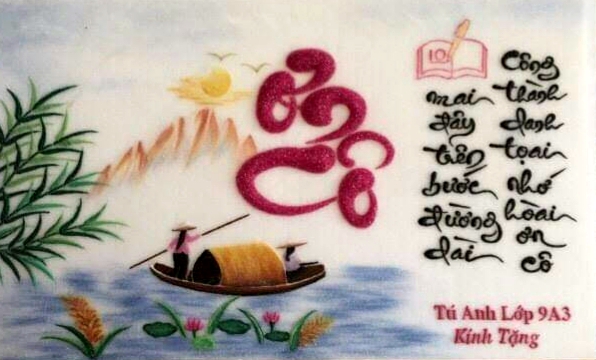 Ơn
Cô
10
mai đây tiến bước đường dài
Công thành danh tọai nhớ hoài ơn cô
Tú Anh Lớp 9A3
Kính Tặng